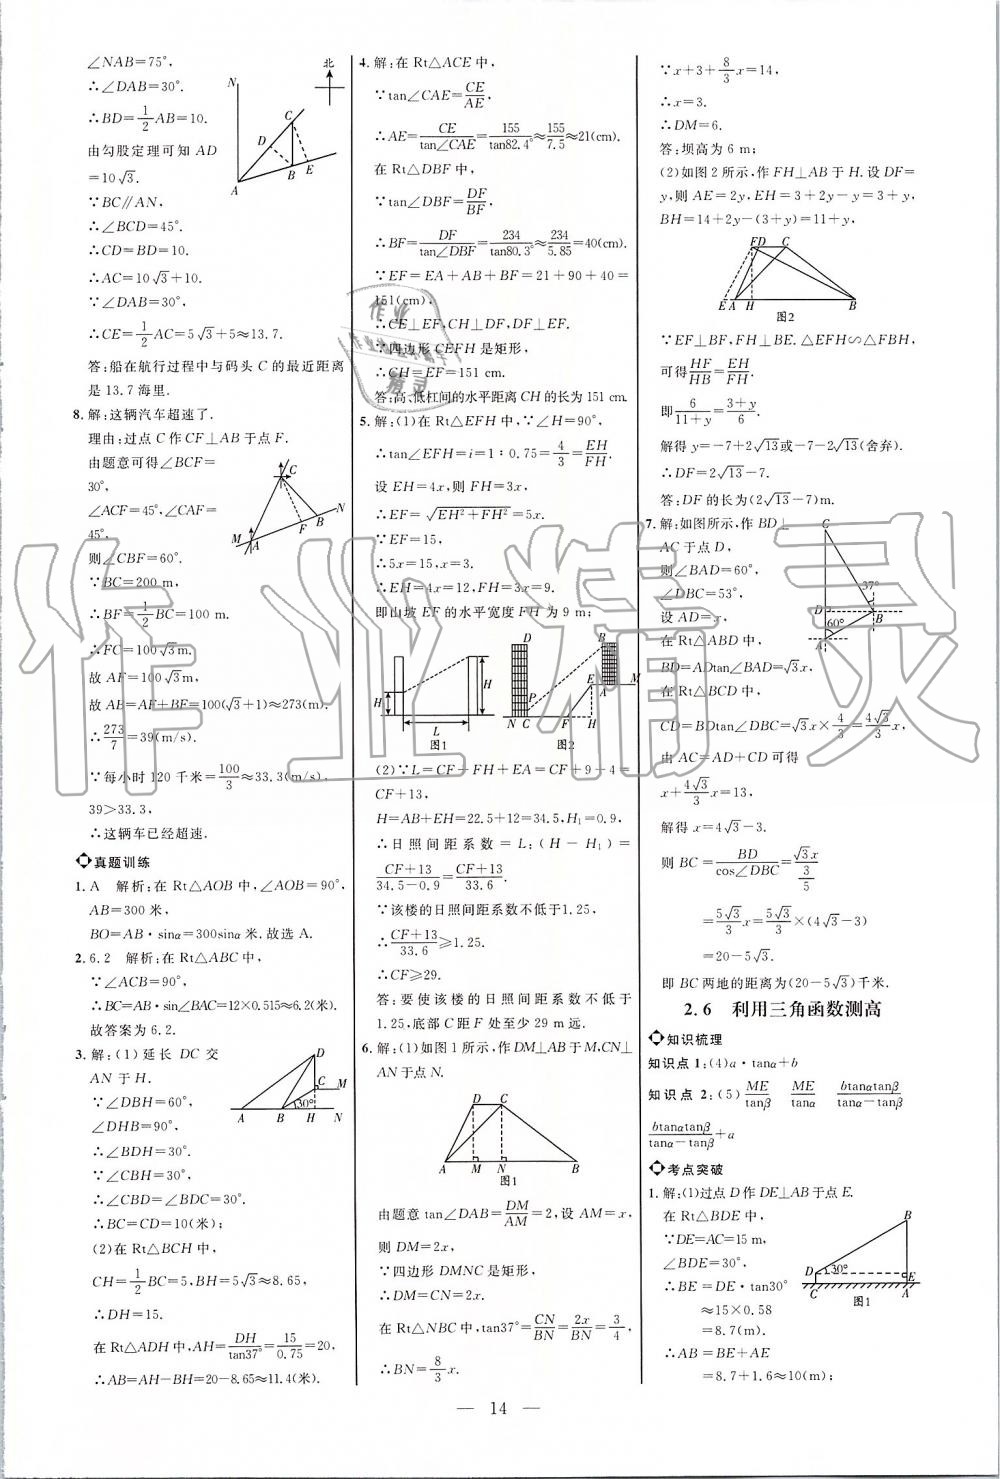 ∠NAB=75°,
∴∠DAB=30°.
∴BD=1/2AB=10.
由勾股定理可知 AD
=10√3.
∵BC∥AN,
∴∠BCD=45°.
∴CD=BD=10.
∴AC=10√3+10.
∵∠DAB=30°.
∴CE=1/2AC=5√3+5≈13.7.
答:船在航行过程中与码头 C 的最近距离
是 13.7 海里.
8. 解:这辆汽车超速了.
理由:过点 C 作 CF⊥AB 于点 F.
由题意可得∠BCF=
30°,
∠ACF=45°,∠CAF=
45°.
则∠CBF=60°.
∵BC=200 m,
∴BF=1/2BC=100 m.
∴FC=100√3 m.
故 AF=100√3 m.
故 AB=AF+BF=100(√3+1)≈273(m).
∴273/7=39(m/s).
∵每小时 120 千米=100/3≈33.3(m/s),
39>33.3,
∴这辆车已经超速.
真题训练
1. A 解析:在 Rt△AOB 中,∠AOB=90°,
AB=300 米,
BO=AB·sinα=300sinα 米.故选 A.
2. 6.2 解析:在 Rt△ABC 中,
∵∠ACB=90°,
∴BC=AB·sin∠BAC=12×0.515≈6.2(米).
故答案为 6.2.
3. 解:(1)延长 DC 交
AN 于 H.
∵∠DBH=60°,
∠DHB=90°,
∴∠BDH=30°.
∵∠CBH=30°,
∴∠CBD=∠BDC=30°.
∴BC=CD=10(米);
(2)在 Rt△BCH 中,
CH=1/2BC=5,BH=5√3≈8.65,
∴DH=15.
在 Rt△ADH 中,AH=DH/tan37°=15/0.75=20,
∴AB=AH−BH=20−8.65≈11.4(米).
北
N
C
D
B E
A
C
N
B
F
M
A
D
C M
30°
A B H N
4. 解:在 Rt△ACE 中,
∵tan∠CAE=CE/AE,
∴AE=CE/tan∠CAE=155/tan82.4°≈155/7.5≈21(cm).
在 Rt△DBF 中,
∵tan∠DBF=DF/BF,
∴BF=DF/tan∠DBF=234/tan80.3°≈234/5.85=40(cm).
∵EF=EA+AB+BF=21+90+40=
151(cm),
∴CE⊥EF,CH⊥DF,DF⊥EF.
∵四边形 CEFH 是矩形,
∴CH=EF=151 cm.
答:高、低杠间的水平距离 CH 的长为 151 cm.
5. 解:(1)在 Rt△EFH 中,∵∠H=90°,
∴tan∠EFH=i=1∶0.75=4/3=EH/FH.
设 EH=4x,则 FH=3x,
∴EF=√(EH²+FH²)=5x.
∵EF=15,
∴5x=15,x=3.
∴EH=4x=12,FH=3x=9.
即山坡 EF 的水平宽度 FH 为 9 m;
H
H
L
图1
D
B
E
M
P
A
N C F H
图2
(2)∵L=CF+FH+EA=CF+9+4=
CF+13,
H=AB+EH=22.5+12=34.5,H₁=0.9,
∴日照间距系数=L∶(H−H₁)=
CF+13/34.5−0.9=CF+13/33.6.
∵该楼的日照间距系数不低于1.25,
∴CF+13/33.6≥1.25.
∴CF≥29.
答:要使该楼的日照间距系数不低于
1.25,底部 C 距 F 处至少 29 m 远.
6. 解:(1)如图 1 所示,作 DM⊥AB 于M,CN⊥
AN于点 N.
D C
A M N B
图1
由题意 tan∠DAB=DM/AM=2,设 AM=x,
则 DM=2x,
∵四边形 DMNC 是矩形,
∴DM=CN=2x.
在 Rt△NBC 中,tan37°=CN/BN=2x/BN=3/4,
∴BN=8/3x.
∵x+3+8/3x=14,
∴x=3.
∴DM=6.
答:坝高为 6 m;
(2)如图 2 所示,作 FH⊥AB 于 H.设 DF=
y,则 AE=2y,EH=3+2y−y=3+y,
BH=14+2y−(3+y)=11+y,
F D C
E A H B
图2
∵EF⊥BF,FH⊥BE.△EFH∽△FBH,
可得HF/HB=EH/FH.
即6/11+y=3+y/6.
解得 y=−7+2√13或−7−2√13(舍弃).
∴DF=2√13−7.
答:DF 的长为(2√13−7)m.
7. 解:如图所示,作 BD⊥
AC 于点 D,
则∠BAD=60°,
∠DBC=53°,
设 AD=x,
在 Rt△ABD 中,
BD=ADtan∠BAD=√3x.
在 Rt△BCD 中,
CD=BDtan∠DBC=√3x×4/3=4√3/3x,
由 AC=AD+CD 可得
x+4√3/3x=13,
解得 x=4√3−3.
则 BC=BD/cos∠DBC=√3x/(3/5)
=5√3/3x=5√3/3×(4√3−3)
=20−5√3.
即 BC 两地的距离为(20−5√3)千米.
C
37°
D
B
60°
A
2.6 利用三角函数测高
知识梳理
知识点 1:(4)a·tanα+b
知识点 2:(5)ME/tanβ ME/tanα btanαtanβ/tanα−tanβ
btanαtanβ/tanα−tanβ+a
考点突破
1. 解:(1)过点 D 作 DE⊥AB 于点 E.
在 Rt△BDE 中,
∵DE=AC=15 m,
∠BDE=30°,
∴BE=DE·tan30°
≈15×0.58
=8.7(m).
∴AB=BE+AE
=8.7+1.6≈10(m);
B
D 30° E
C A
图1
— 14 —
作业精灵